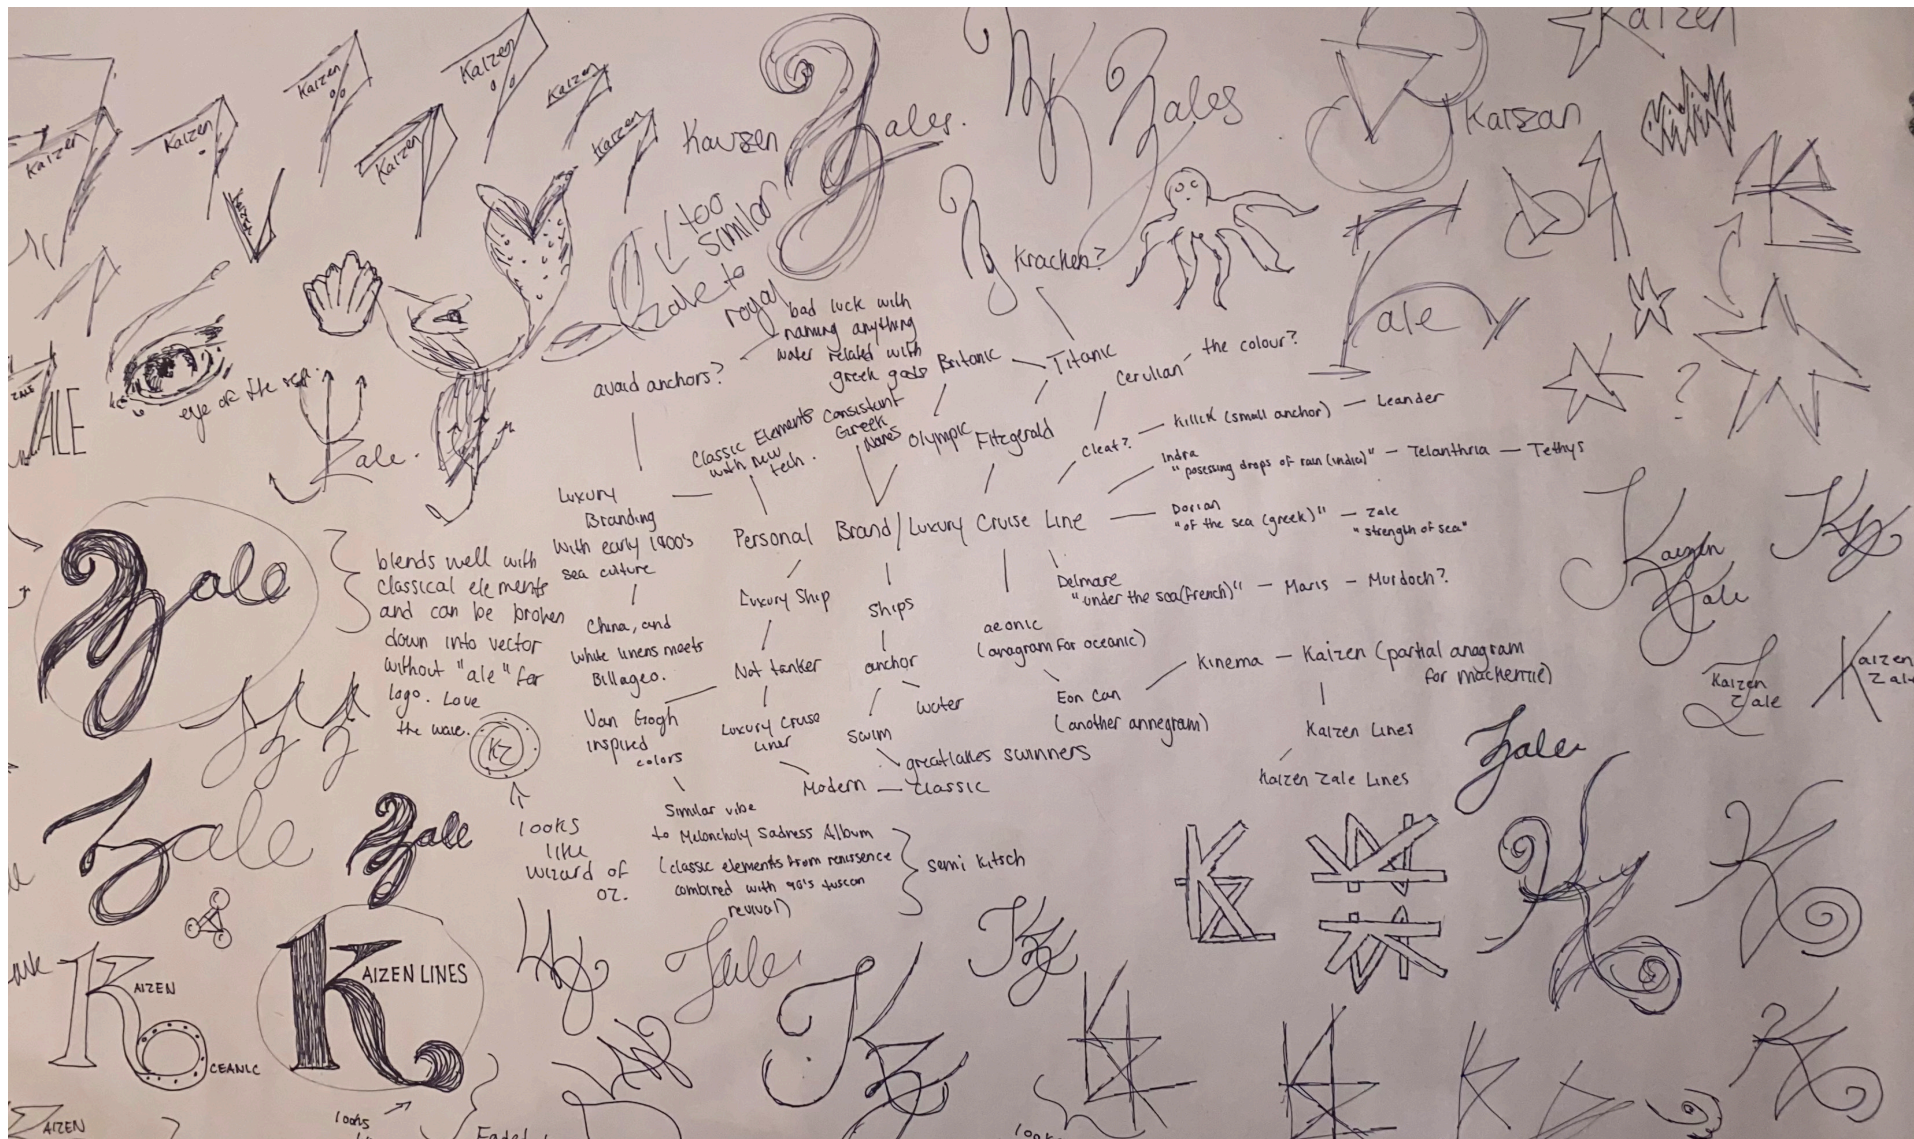 Kaizen
Kaizen
Kaizen
Kaizen
Kaizen
Kaizen
Kaizen
Kaizen
Kaizen
Zales.
K Zales
Kaizen
Karszan
too
similar
to
royal
Zale
Krachen?
ale
eye of the sea.
Zale.
ZALE
ALE
avoid anchors?
bad luck with
naming anything
water related with
greek gods
Britanic
Titanic
Cerulian
the colour?
Classic Elements
with new
tech.
Consistant
Greek
Names
Olympic
Fitzgerald
Cleat?
Killick (small anchor) — Leander
Indra
"posessing drops of rain (india)" — Telanthria — Tethys
?
Luxury
Branding
with early 1900's
sea culture
Personal Brand/Luxury Cruise Line
Dorian
"of the sea (greek)" — Zale
"strength of sea"
Delmare
"under the sea (french)" — Maris — Murdoch?
Zale
blends well with
classical elements
and can be broken
down into vector
without "ale" for
logo. Love
the wave.
China, and
white linens meets
Billageo.
Luxury Ship
Ships
aeonic
(anagram for oceanic)
Not tanker
anchor
water
Kinema — Kaizen (partial anagram
for mackenzie)
Eon Can
(another annegram)
Van Gogh
inspired
colors
Luxury Cruise
Liner
Swim
greatlakes swinners
Modern — Classic
Kaizen Lines
Kaizen Zale Lines
Kaizen
Zale
KZ
Kaizen
Zale
Kaizen
Zale
Zales
KZ
looks
like
wizard of
oz.
Similar vibe
to Meloncholy Sadness Album
(classic elements from renirsence
combined with 90's tuscan
revival)
semi kitsch
Zale
Zale
Zales
KZ
KZ
KAIZEN
OCEANIC
KAIZEN LINES
KZ
AIZEN
looks
looks